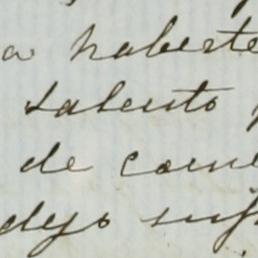 a haberte
talento
de come
dejo suf